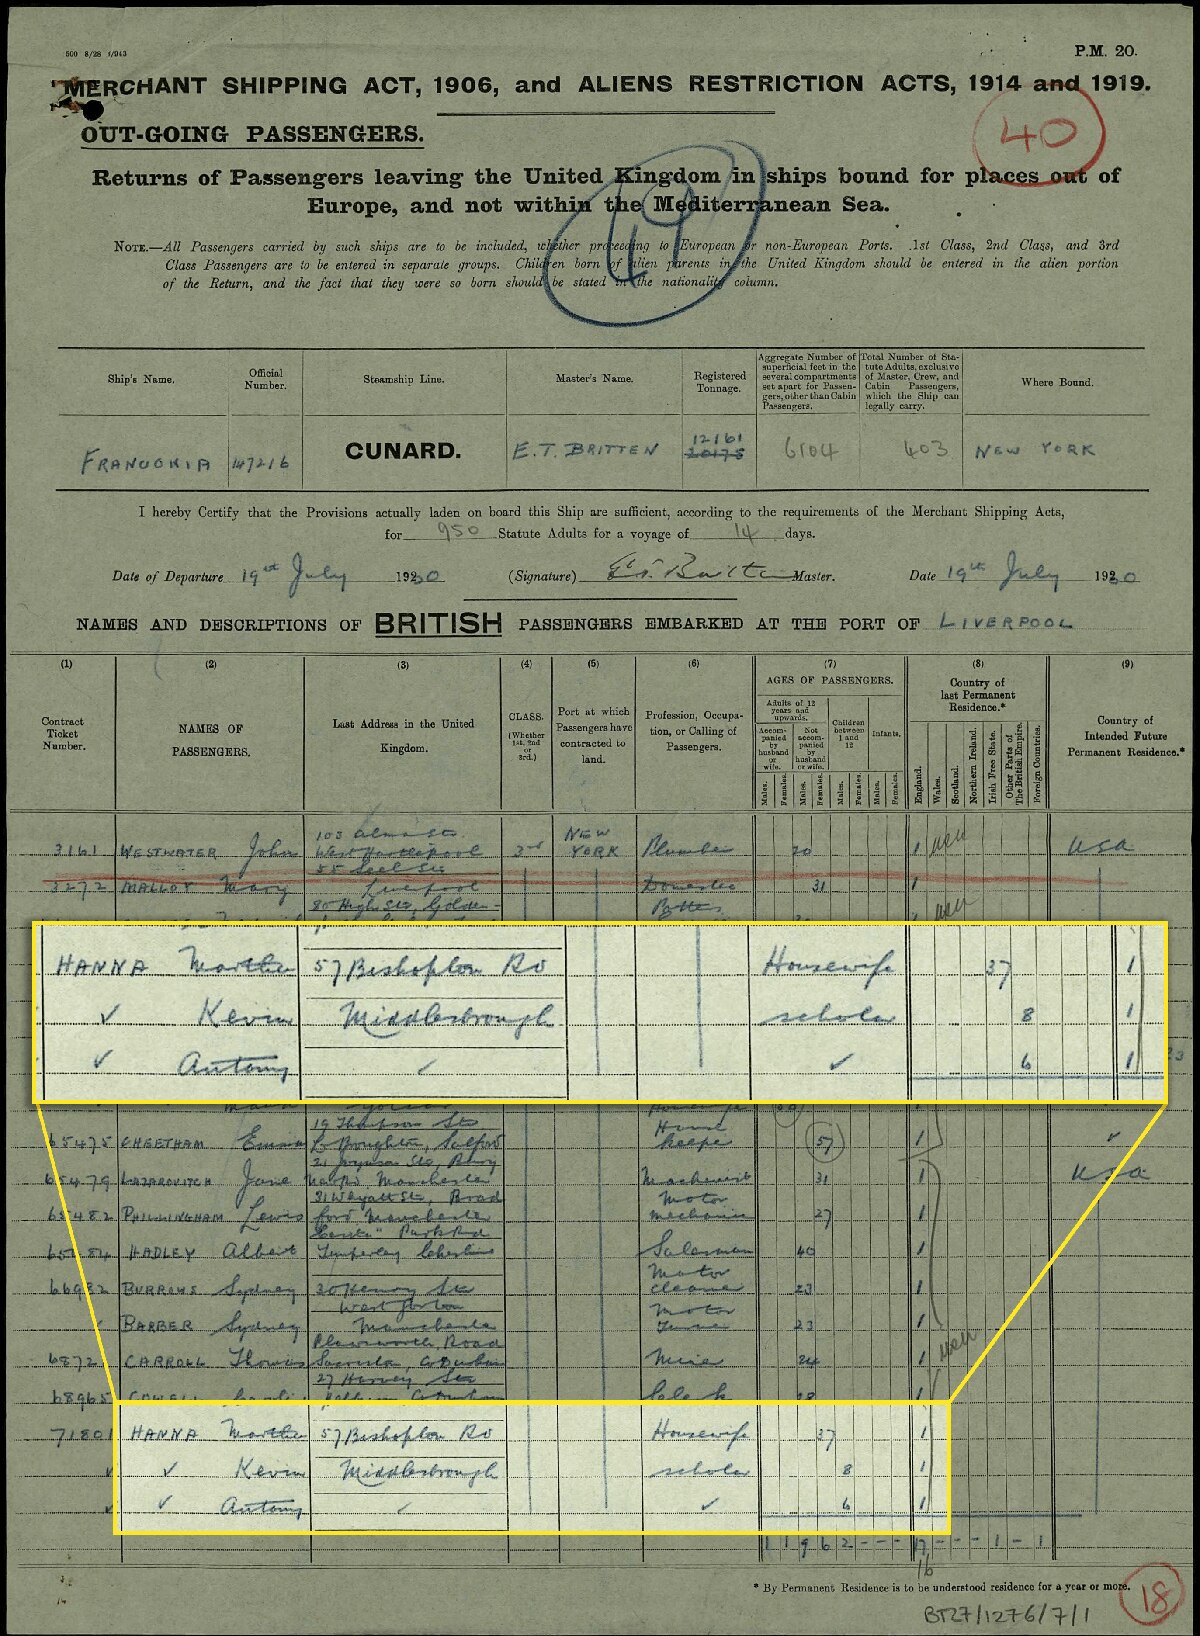 500 8/28 1/943
P.M. 20.
MERCHANT SHIPPING ACT, 1906, and ALIENS RESTRICTION ACTS, 1914 and 1919.
40
OUT-GOING PASSENGERS.
Returns of Passengers leaving the United Kingdom in ships bound for places out of
Europe, and not within the Mediterranean Sea.
NOTE.—All Passengers carried by such ships are to be included, whether proceeding to European or non-European Ports. 1st Class, 2nd Class, and 3rd
Class Passengers are to be entered in separate groups. Children born of alien parents in the United Kingdom should be entered in the alien portion
of the Return, and the fact that they were so born should be stated in the nationality column.
Ship's Name. Official Number. Steamship Line. Master's Name. Registered Tonnage. Aggregate Number of superficial feet in the several compartments set apart for Passengers, other than Cabin Passengers. Total Number of Statute Adults, exclusive of Master, Crew, and Cabin Passengers, which the Ship can legally carry. Where Bound.
147216 CUNARD. E.T. BRITTEN 12161 20175 6104 403 NEW YORK
I hereby Certify that the Provisions actually laden on board this Ship are sufficient, according to the requirements of the Merchant Shipping Acts,
for 950 Statute Adults for a voyage of 14 days.
Date of Departure 19th July 1930 (Signature) E.T. Britten Master. Date 19th July 1930
NAMES AND DESCRIPTIONS OF BRITISH PASSENGERS EMBARKED AT THE PORT OF LIVERPOOL
(1) (2) (3) (4) (5) (6) (7) (8) (9)
Contract Ticket Number. NAMES OF PASSENGERS. Last Address in the United Kingdom. CLASS. (Whether 1st, 2nd or 3rd.) Port at which Passengers have contracted to land. Profession, Occupation, or Calling of Passengers. AGES OF PASSENGERS. Country of last Permanent Residence.* Country of Intended Future Permanent Residence.*
Adults of 12 years and upwards. Children between 1 and 12 Infants.
Accompanied by husband or wife. Not accompanied by husband or wife.
Males. Females. Males. Females. Males. Females. Males. Females. England. Wales. Scotland. Northern Ireland. Irish Free State. Other Parts of The British Empire. Foreign Countries.
3161 WESTWATER John West Hartlepool 3rd NEW YORK Plumber 20 1 USA
3272 MALLOY Mary Liverpool Domestic 31 1
80 High St, Golden-
HANNA Martha 57 Bishopton Rd Housewife 37 1
✓ Kevin Middlesbrough scholar 8 1
✓ Antony ✓ ✓ 6 1
19 Thompson St
65475 CHEETHAM Emma Broughton, Salford Housekeeper 57 1 ✓
65479 LAZAROVITCH Jane Manchester Machinist 31 1 USA
65482 PHILLINGHAM Lewis Manchester Motor mechanic 27 1
HADLEY Albert Timperley Cheshire Salesman 40 1
66982 BURROWS Sydney 20 Henry St West Gorton Motor cleaner 23 1
BARBER Sydney Manchester Motor 23 1
6872 CARROLL Thomas Sacriston, Co Durham 24 1
27 Harvey St
68965 Clerk 1
71801 HANNA Martha 57 Bishopton Rd Housewife 37 1
✓ Kevin Middlesbrough scholar 8 1
✓ Antony ✓ ✓ 6 1
1 1 9 6 2 - - - 17 - - - 1 - 1
16
* By Permanent Residence is to be understood residence for a year or more.
18
BT27/1276/7/1